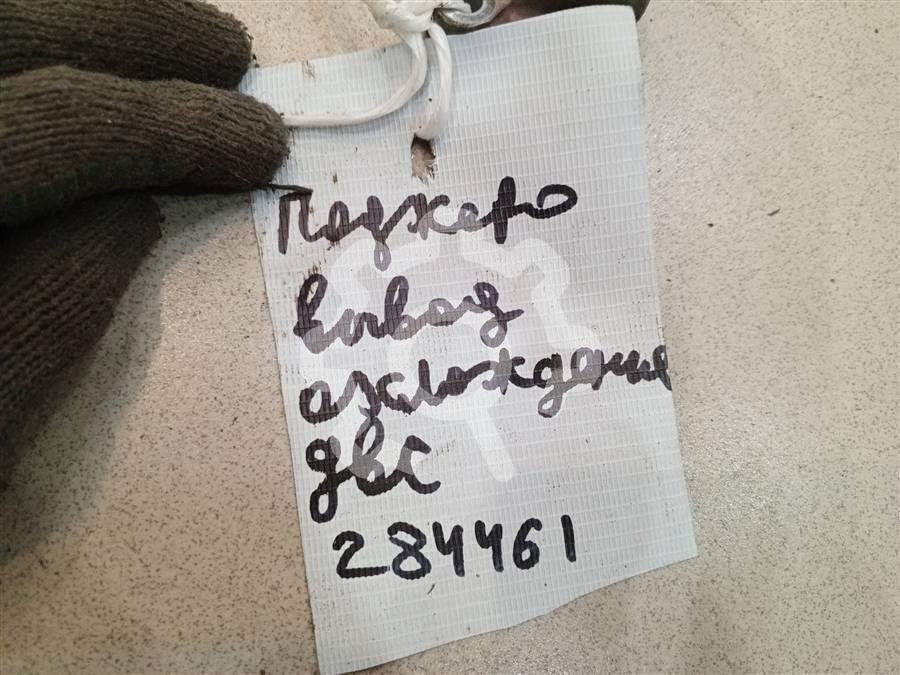 Паджеро
вывод
охлаждения
ДВС
284461